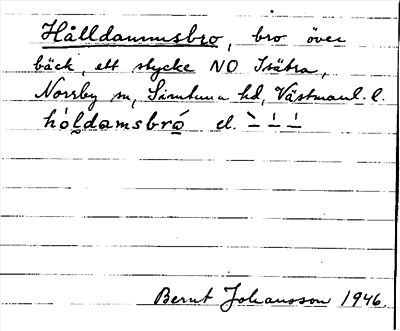 Hålldammsbro, bro över
bäck, ett stycke NO Isätra,
Norrby sn, Simtuna hd, Västmanl. l.
hòldamsbró el. – – –
Bernt Johansson 1946.